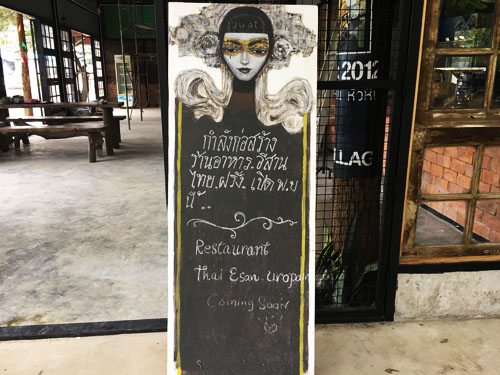 กำลังก่อสร้าง
ร้านอาหาร.อีสาน
ไทย.ฝรั่ง. เปิด.พ.ย
นี้..
Restaurant
Thai Esan. uropan
Coming Soon
2012
LLAG